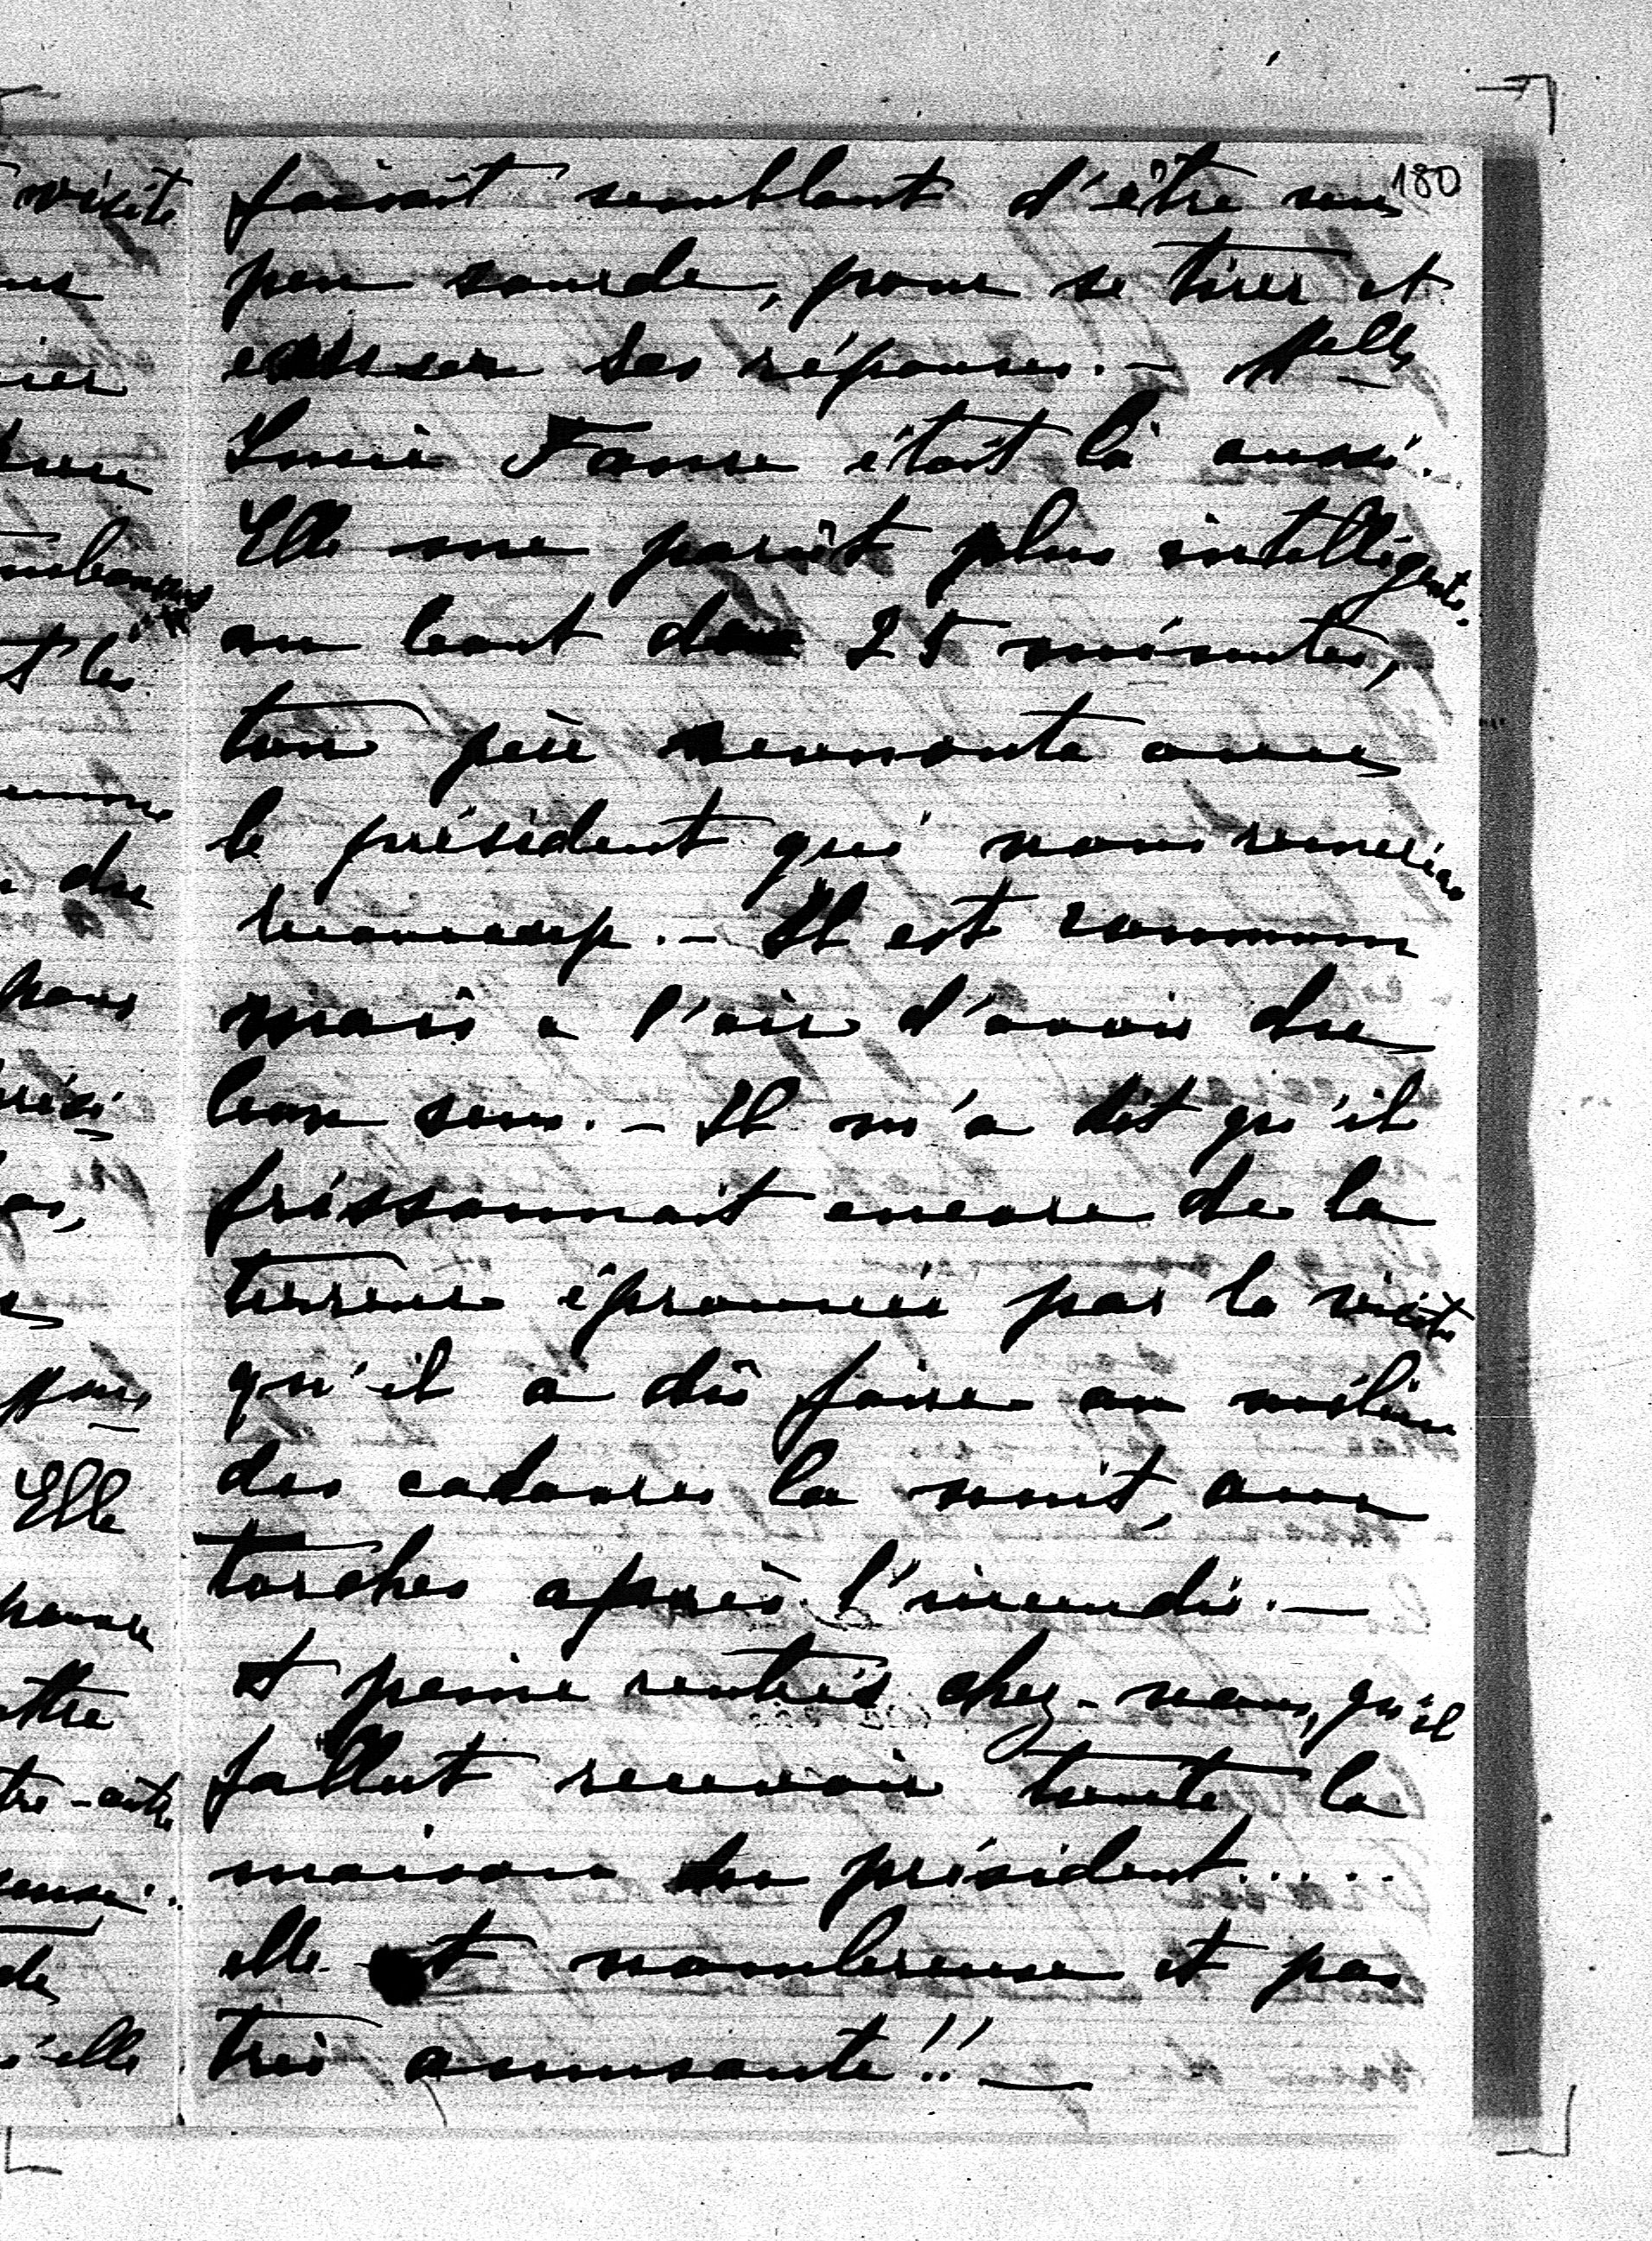 180
faisait semblant d'être un
peu sourde, pour se tirer et
ses réponses. — Melle
Lucie Faure était là aussi.
Elle me parut plus intelligente.
au bout de 25 minutes,
ton père remonte avec
le président qui nous remercia
beaucoup. — Il est commun
mais a l'air d'avoir du
bon sens. — Il m'a dit qu'il
frissonnait encore de la
terreur éprouvée par la visite
qu'il a dû faire au milieu
des cadavres la nuit, aux
torches après l'incendie. —
A peine rentrés chez-nous, qu'il
fallut recevoir toute la
maison du président.....
elle est nombreuse et pas
très amusante!! —